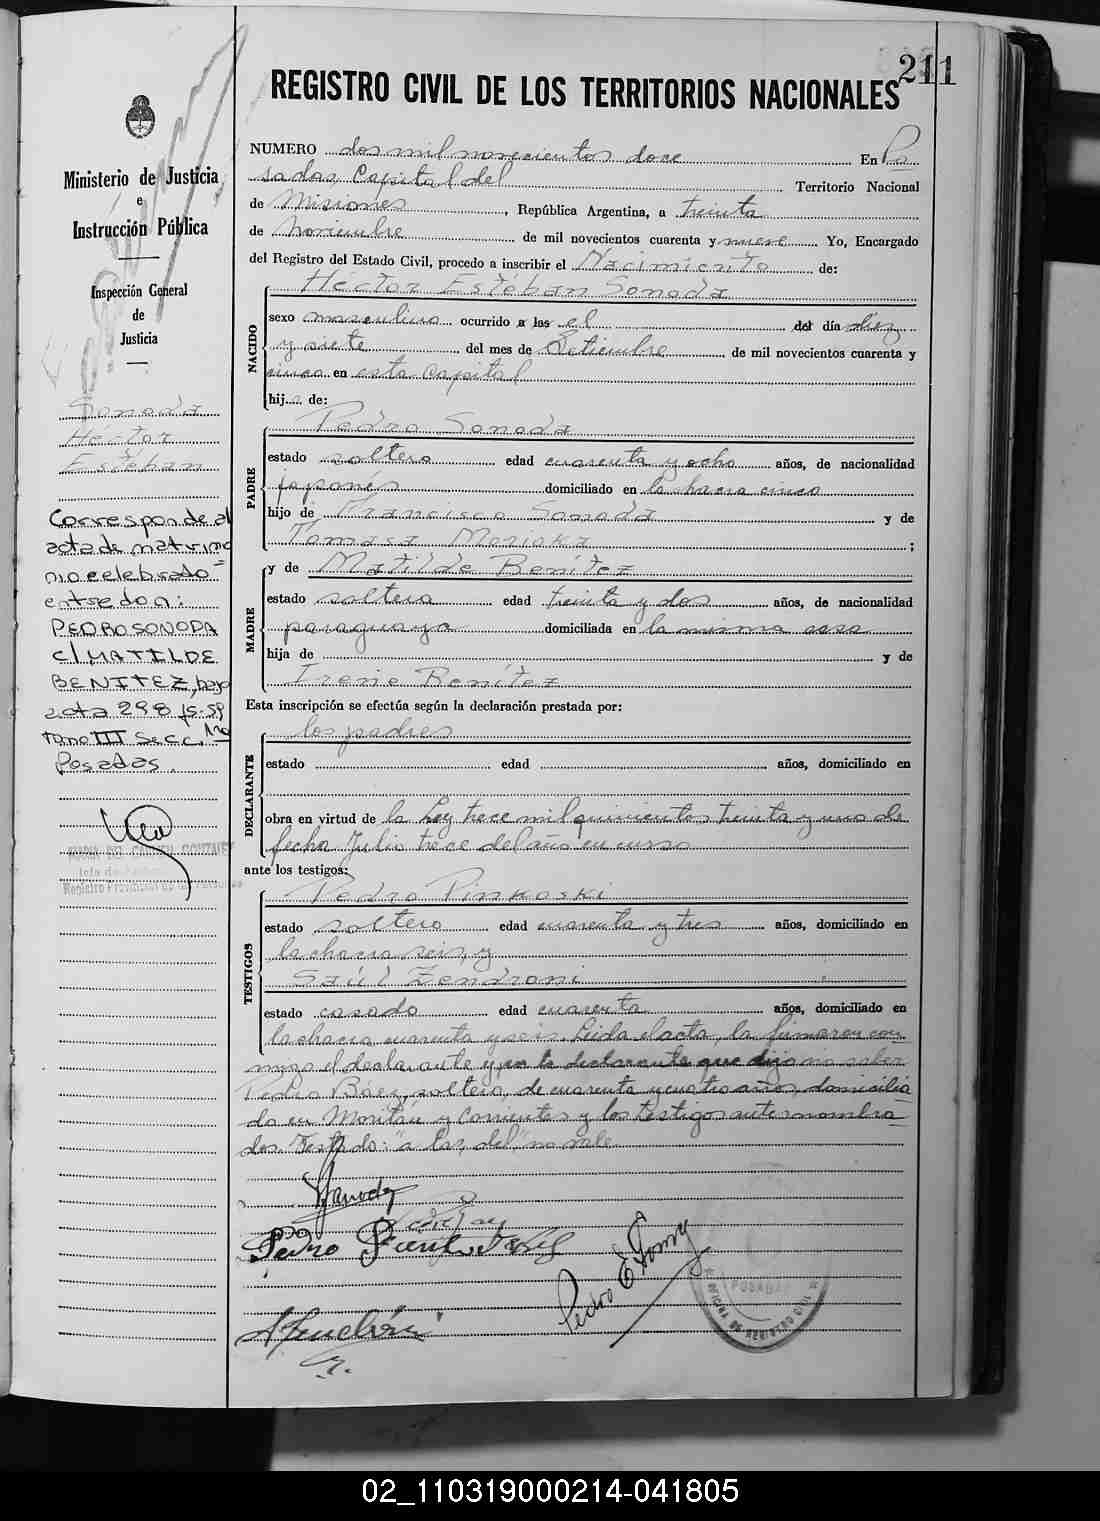 211
REGISTRO CIVIL DE LOS TERRITORIOS NACIONALES
NUMERO dos mil novecientos doce En Po
sadas, Capital del Territorio Nacional
de Misiones, República Argentina, a treinta
de Noviembre de mil novecientos cuarenta y nueve Yo, Encargado
del Registro del Estado Civil, procedo a inscribir el Nacimiento de:
NACIDO
Héctor Estéban Sonoda
sexo masculino ocurrido a las el del día diez
y siete del mes de Setiembre de mil novecientos cuarenta y
cinco en esta Capital
hijo de:
PADRE
Pedro Sonoda
estado soltero edad cuarenta y ocho años, de nacionalidad
japones domiciliado en la chacra cinco
hijo de Francisco Sonoda y de
Tomasa Morioka;
MADRE
y de Matilde Benítez
estado soltera edad treinta y dos años, de nacionalidad
paraguaya domiciliada en la misma casa
hija de y de
Irene Benítez
Esta inscripción se efectúa según la declaración prestada por:
DECLARANTE
los padres
estado edad años, domiciliado en
obra en virtud de la Ley trece mil quinientos treinta y uno de
fecha Julio trece del año en curso
ante los testigos:
TESTIGOS
Pedro Pinkoski
estado soltero edad cuarenta y tres años, domiciliado en
la chacra seis, y
Saúl Zendroni
estado casado edad cuarenta años, domiciliado en
la chacra cuarenta y seis. Leida el acta, la firmaron con
migo el declarante y por la declarante que dijo no saber
Pedro Báez, soltero, de cuarenta y cuatro años, domicilia
do en Moritán y Corrientes y los testigos antes nombra
dos. Testado: "a las, del," no vale.
Ministerio de Justicia
e
Instrucción Pública
Inspección General
de
Justicia
Sonoda
Héctor
Estéban
Corresponde al
acta de matrimo
nio celebrado
entre don:
PEDRO SONODA
c/ MATILDE
BENITEZ, bajo
acta 298 fs-59
tomo III Secc. 1ra
Posadas.
MARIA DEL CARMEN GONZALEZ
Registro Provincial de las Personas
POSADAS
OFICINA DE REGISTRO CIVIL
02_110319000214-041805